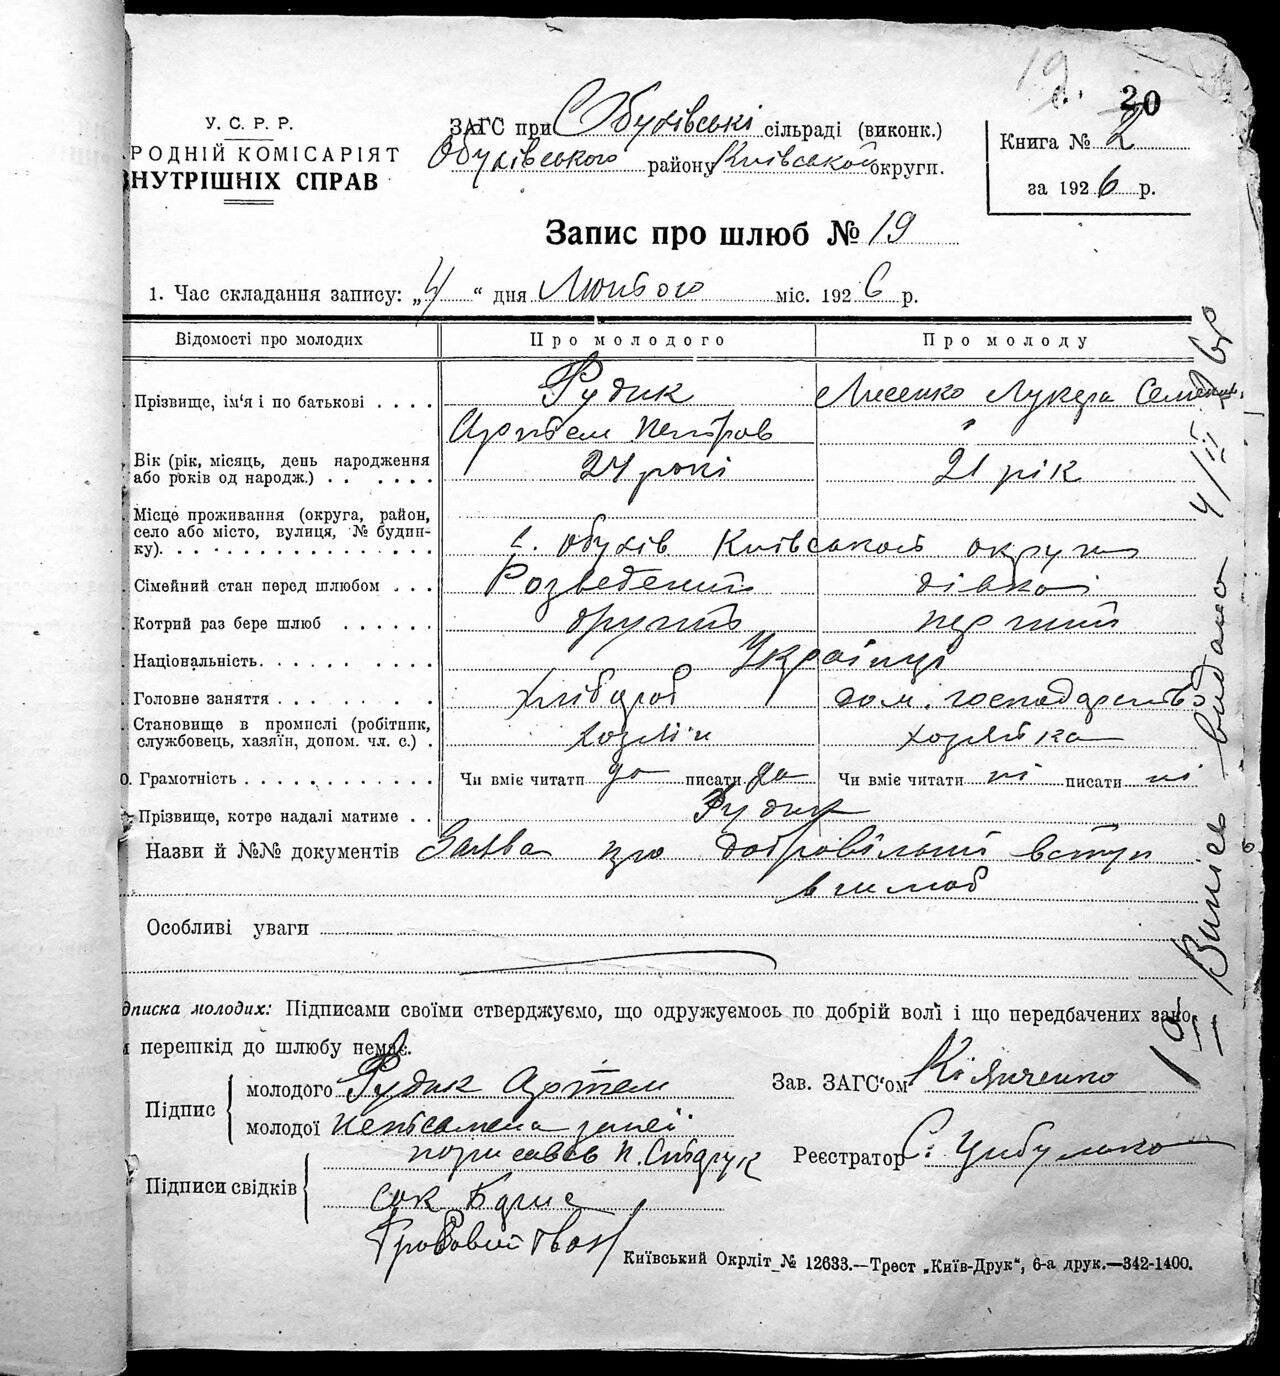 19 20
У. С. Р. Р.
РОДНІЙ КОМІСАРІЯТ
НУТРІШНІХ СПРАВ
ЗАГС при Обухівські сільраді (виконк.)
Обухівського району Київської округи.
Книга № 2
за 1926 р.
Запис про шлюб № 19
1. Час складання запису: „4“ дня Лютого міс. 1926 р.
Відомості про молодих Про молодого Про молоду
Прізвище, ім'я і по батькові . . . . Рудик Лисенко Лукера Семенів.
Артем Петров
Вік (рік, місяць, день народження або років од народж.) . . . . . . 24 рокі 21 рік
Місце проживання (округа, район, село або місто, вулиця, № будинку). с. Обухів Київської округи
Сімейний стан перед шлюбом . . . Розведений дівка
Котрий раз бере шлюб . . . . . . другий перший
Національність. . . . . . . . . . Українці
Головне заняття . . . . . . . . Хлібороб дом. господарство
Становище в промислі (робітник, службовець, хазяїн, допом. чл. с.) . хозяїн хозяйка
0. Грамотність . . . . . . . . . . . Чи вміє читати да писати да Чи вміє читати ні писати ні
Прізвище, котре надалі матиме . . Рудик
Назви й №№ документів Заява про добровільний вступ
в шлюб
Особливі уваги
дписка молодих: Підписами своїми стверджуємо, що одружуємось по добрій волі і що передбачених зако-
м перешкід до шлюбу немає.
Підпис молодого Рудик Артем
молодої неписьмена за неї
порисавсь П.
Зав. ЗАГС'ом Кіянченко
Реєстратор С. Цибулько
Підписи свідків сак Борис
Гробовий Іван
Київський Окрліт № 12633.—Трест „Київ-Друк“, 6-а друк.—342-1400.
Випіс видано 4/III 26 р